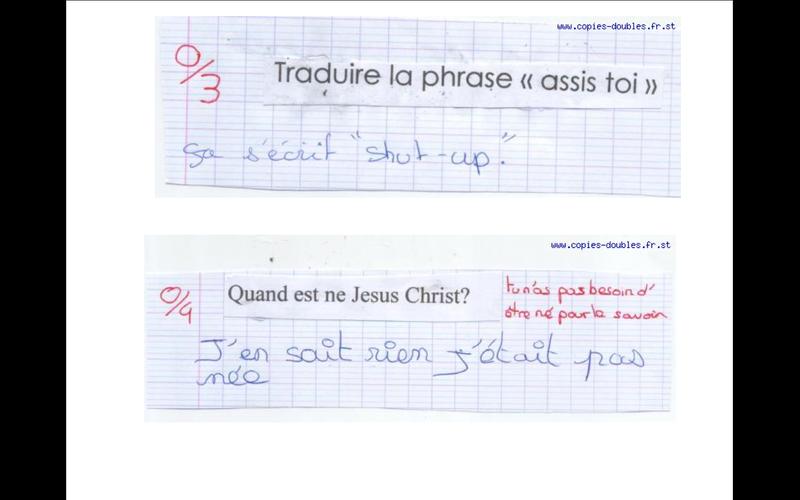 www.copies-doubles.fr.st
0/3
Traduire la phrase « assis toi »
ça s'écrit "shut-up."
www.copies-doubles.fr.st
0/4
Quand est ne Jesus Christ?
tu n'as pas besoin d'
être né pour le savoir
J'en sait rien j'était pas
née